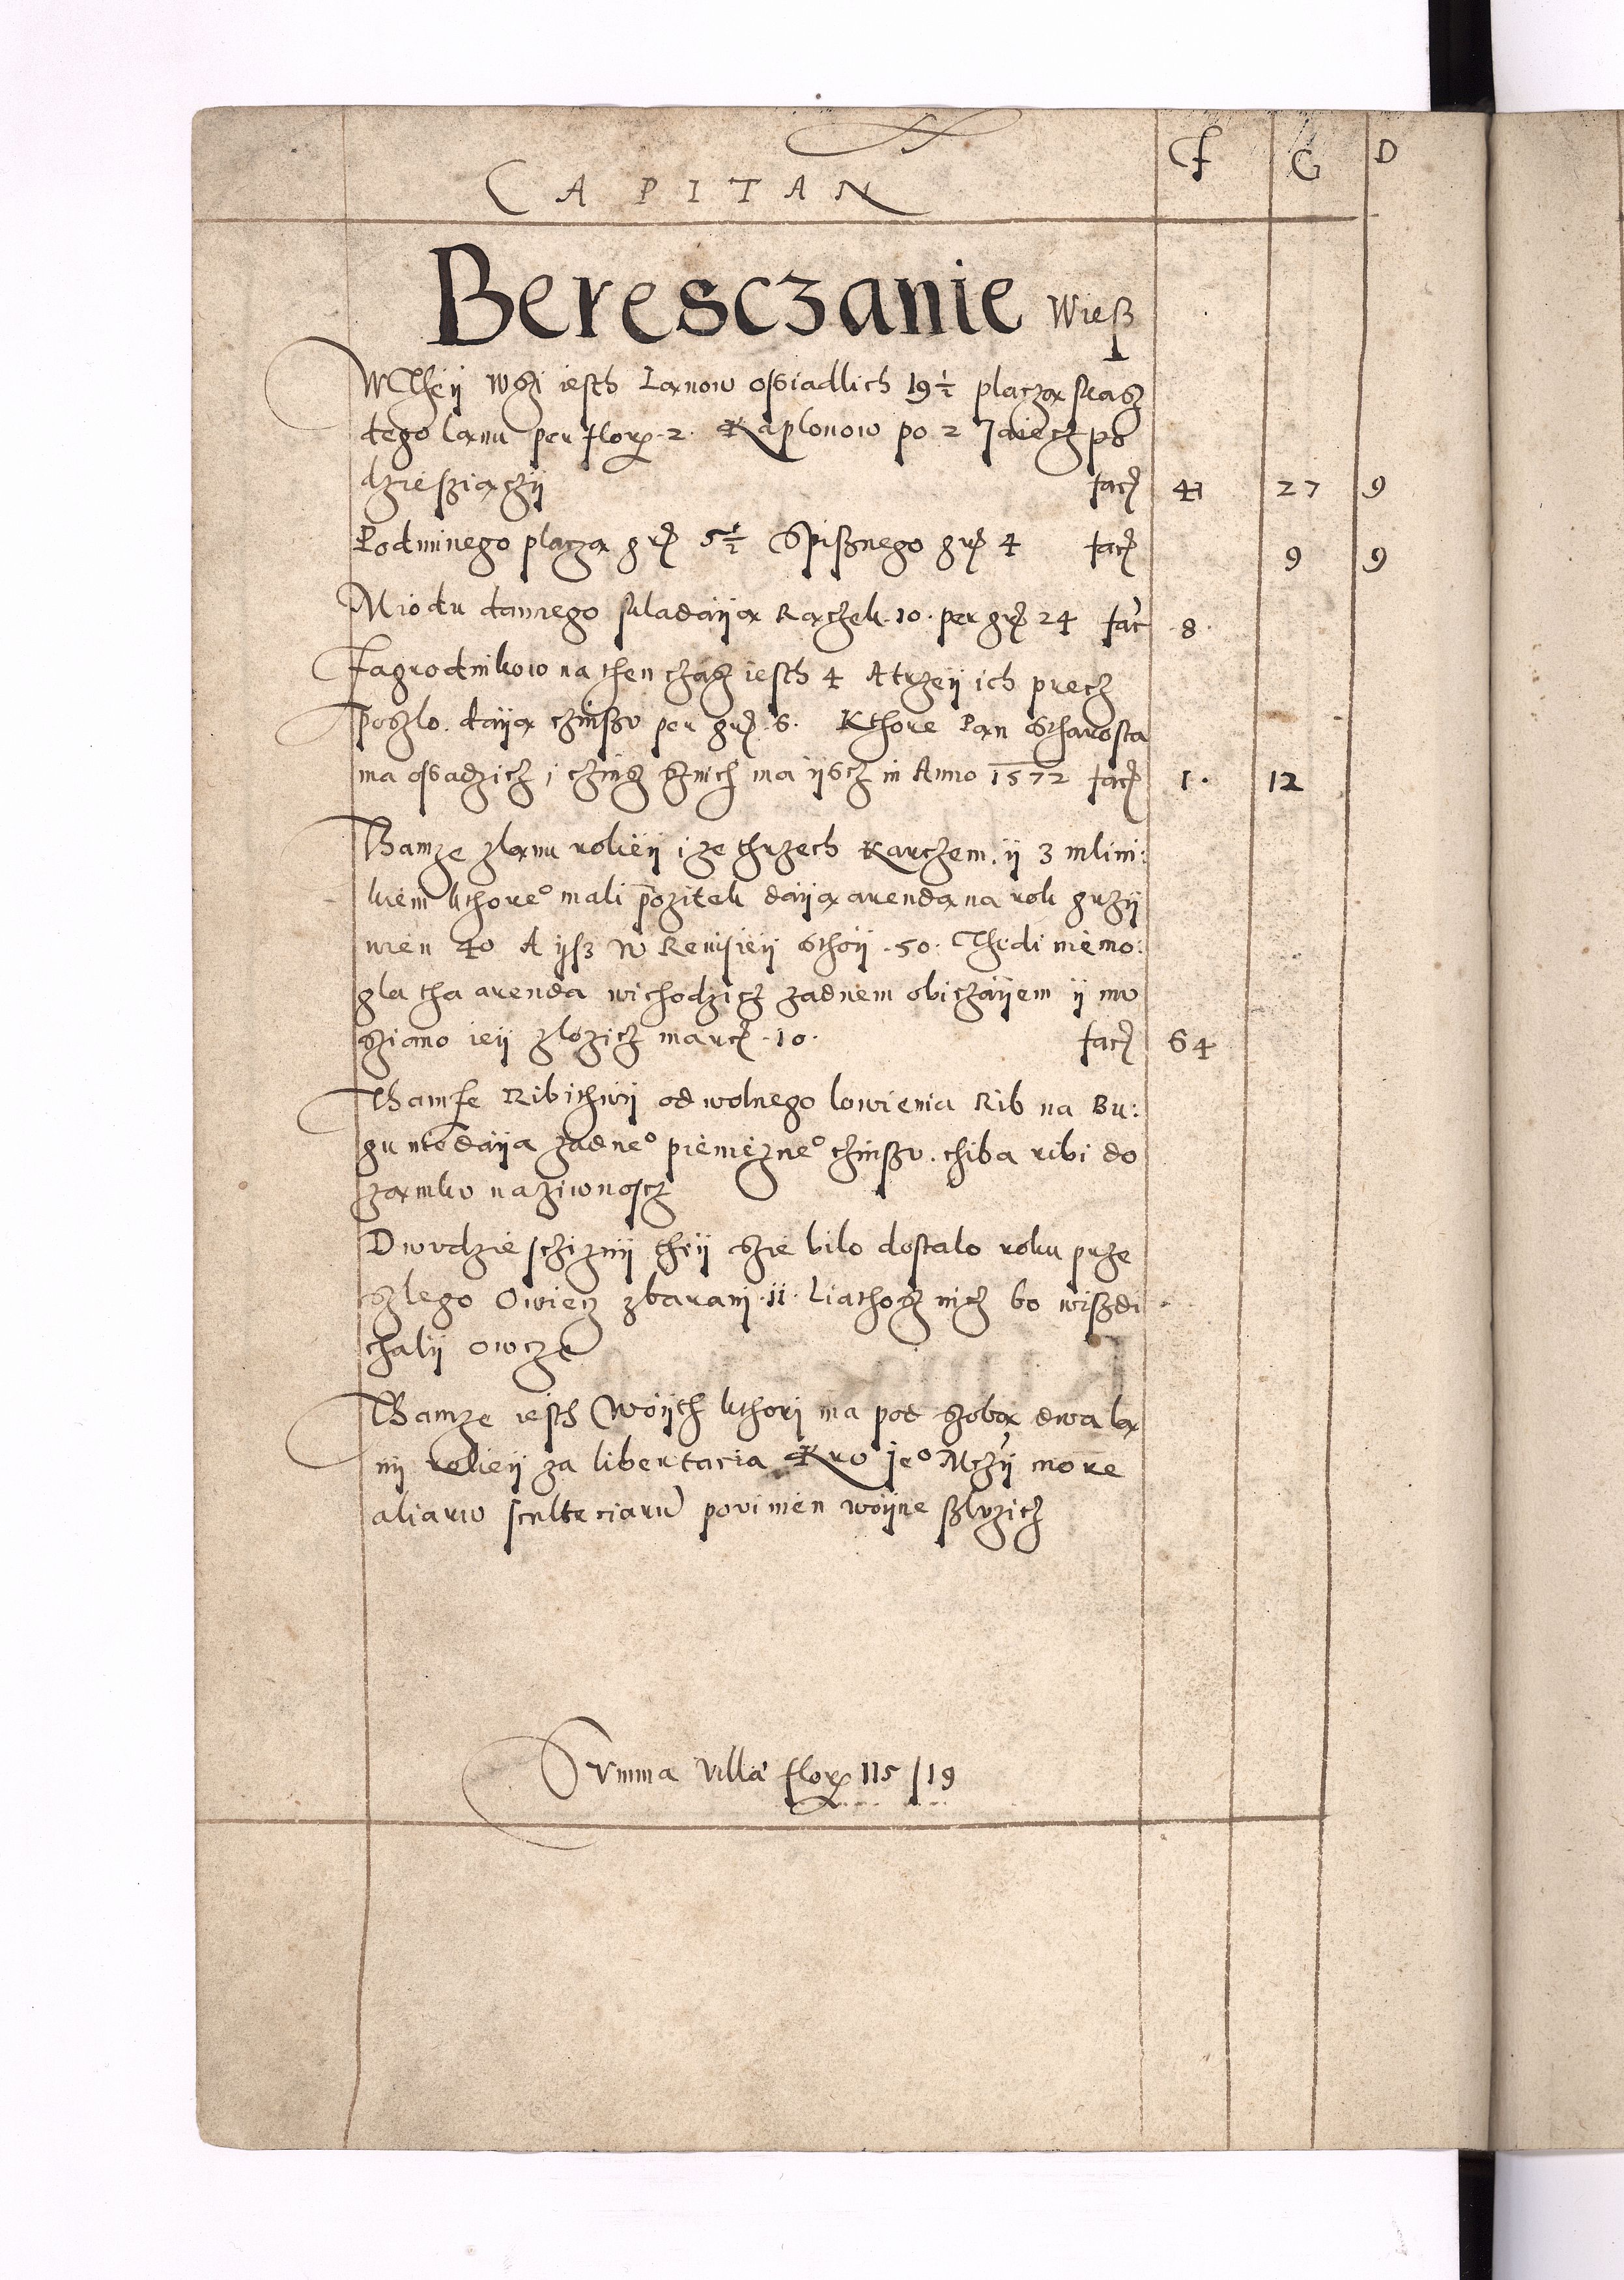 CAPITAN F G D
Beresczanie Wieß
WTheij wsi iesth Lanow osiadlich 19½ placza s kasz
dego lanu per flor. 2. Kaplonow po 2 Jaiecz po
dziesziaczij facj 41 27 9
Podimnego placza grj 5½ Spisznego grj 4 facj 9 9
Miodu dannego skladaija Raczek 10. per grj 24 fac 8.
Zagrodnikow na then czasz iesth 4 A trzeij ich precz
poszlo. daija czinszu per grj 6. Kthore Pan Starosta
ma osadzicz i czinsz sznich ma ijscz in Anno 1572 facj 1. 12
Thamze zlanu rolieij i ze thrzech Karczem. ij 3 mlini:
kiem kthoreo mali pozitek daija arenda na rok grzij
wien 40 A ijsz w Rewisieij sthoij .50. Thedi niemo:
gla tha arenda wichodzicz zadnem obiczaijem ij mu
sziano ieij zlozicz marcj .10. facj 64
Thamze Ribithwij od wolnego lowienia Rib na Bu:
gu niedaija zadneo pienieżneo czinszu. chiba ribi do
zamku na ziwnoscz
Dwudziescziznij theij szie bilo dostalo roku prze
szlego Owiecz zbarani .11. Liathosz nicz bo wiszdi
chalij owcze
Thamze iesth Woijth kthori ma pod szoba dwa la
nij rolieij za libertacia Kro jeo Mczij more
aliaru sculteciaru powinien woijne szluzicz
Summa Villa flor 115 / 19